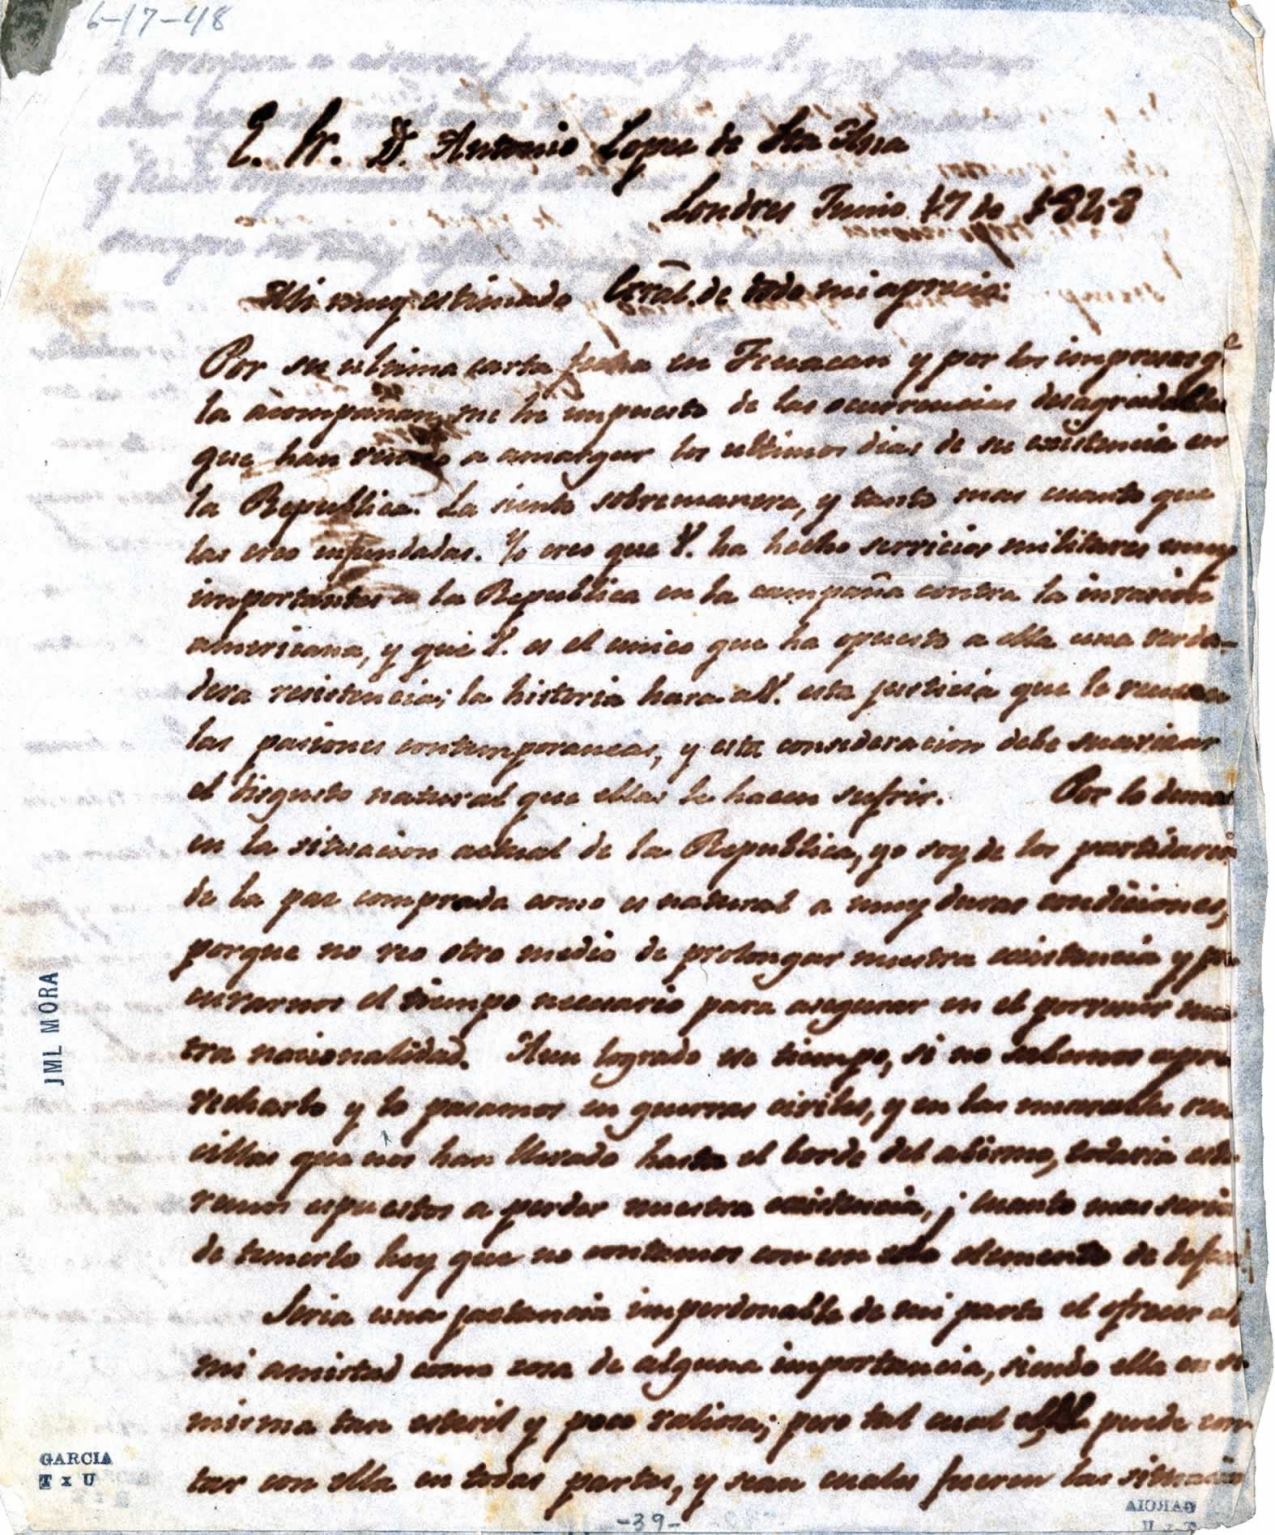 6-17-48
E. Sr. D. Antonio Lopez de Sta Ana
Londres Junio 17 de 1848
Mi muy estimado Gral. de todo mi aprecio:
Por su ultima carta fecha en Teuacan y por los impresos qe
la acompañan, me he impuesto de las ocurrencias desagradables
que han venido a amargar los ultimos dias de su existencia en
la Republica. La siento sobremanera, y tanto mas cuanto que
las creo infundadas. Yo creo que V. ha hecho servicios militares muy
importantes a la Republica en la campaña contra la invasión
americana, y que V. es el unico que ha opuesto a ella una verda-
dera resistencia; la historia hara a V. esta justicia que le reusan
las pasiones contemporaneas, y esta consideracion debe suavizar
el disgusto natural que ellas le hacen sufrir. Por lo demas
en la situacion actual de la Republica, yo soy de los partidarios
de la paz comprada como es natural a muy duras condiciones,
porque no veo otro medio de prolongar nuestra existencia y pro
curarnos el tiempo necesario para asegurar en el porvenir nues
tra nacionalidad. Aun logrado ese tiempo, si no sabemos apro
vecharlo y lo pasamos en guerras civiles, y en las miserables ren
cillas que nos han llevado hasta el borde del abismo, todavia esta
remos espuestos a perder nuestra existencia, ¡cuanto mas seria
de temerlo hoy que no contamos con un solo elemento de defensa!
Seria una jactancia imperdonable de mi parte el ofrecer al
mi amistad como cosa de alguna importancia, siendo ella en si
misma tan esteril y poco valiosa; pero tal cual es puede con
tar con ella en todas partes, y sean cuales fueren las situacio
JML MORA
GARCIA
T x U
-39-